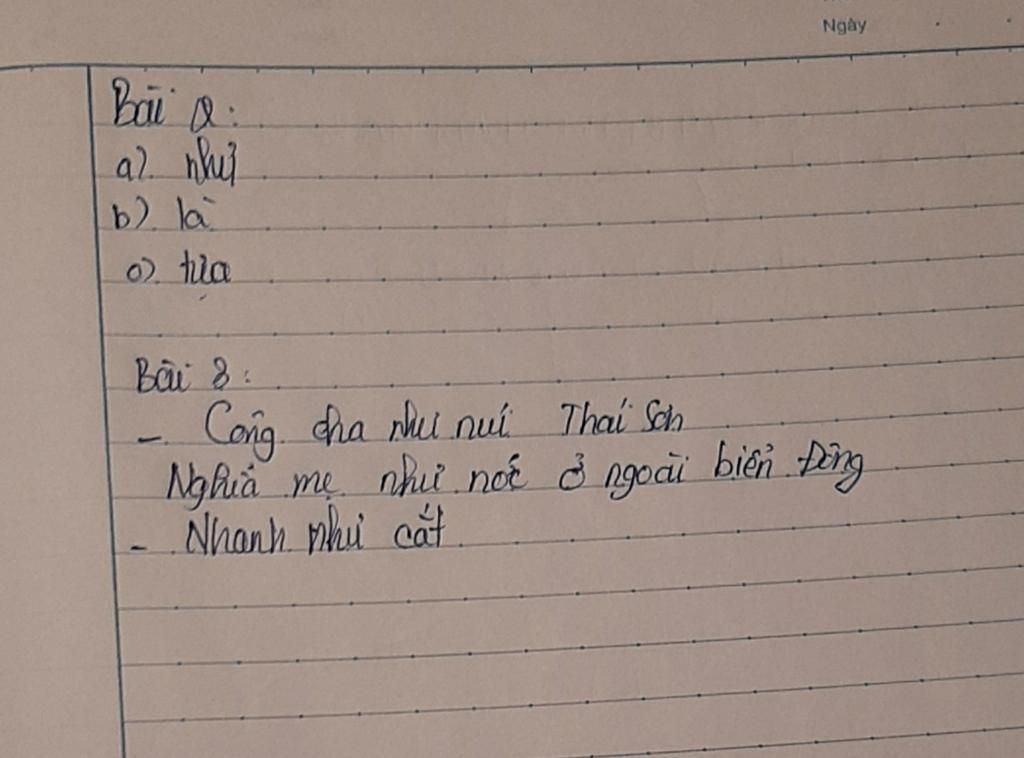 Ngày
Bài 2:
a) như
b) là
c) tựa
Bài 3:
- Công cha như núi Thái Sơn
Nghĩa mẹ như nớc ở ngoài biển Đông
- Nhanh như cắt